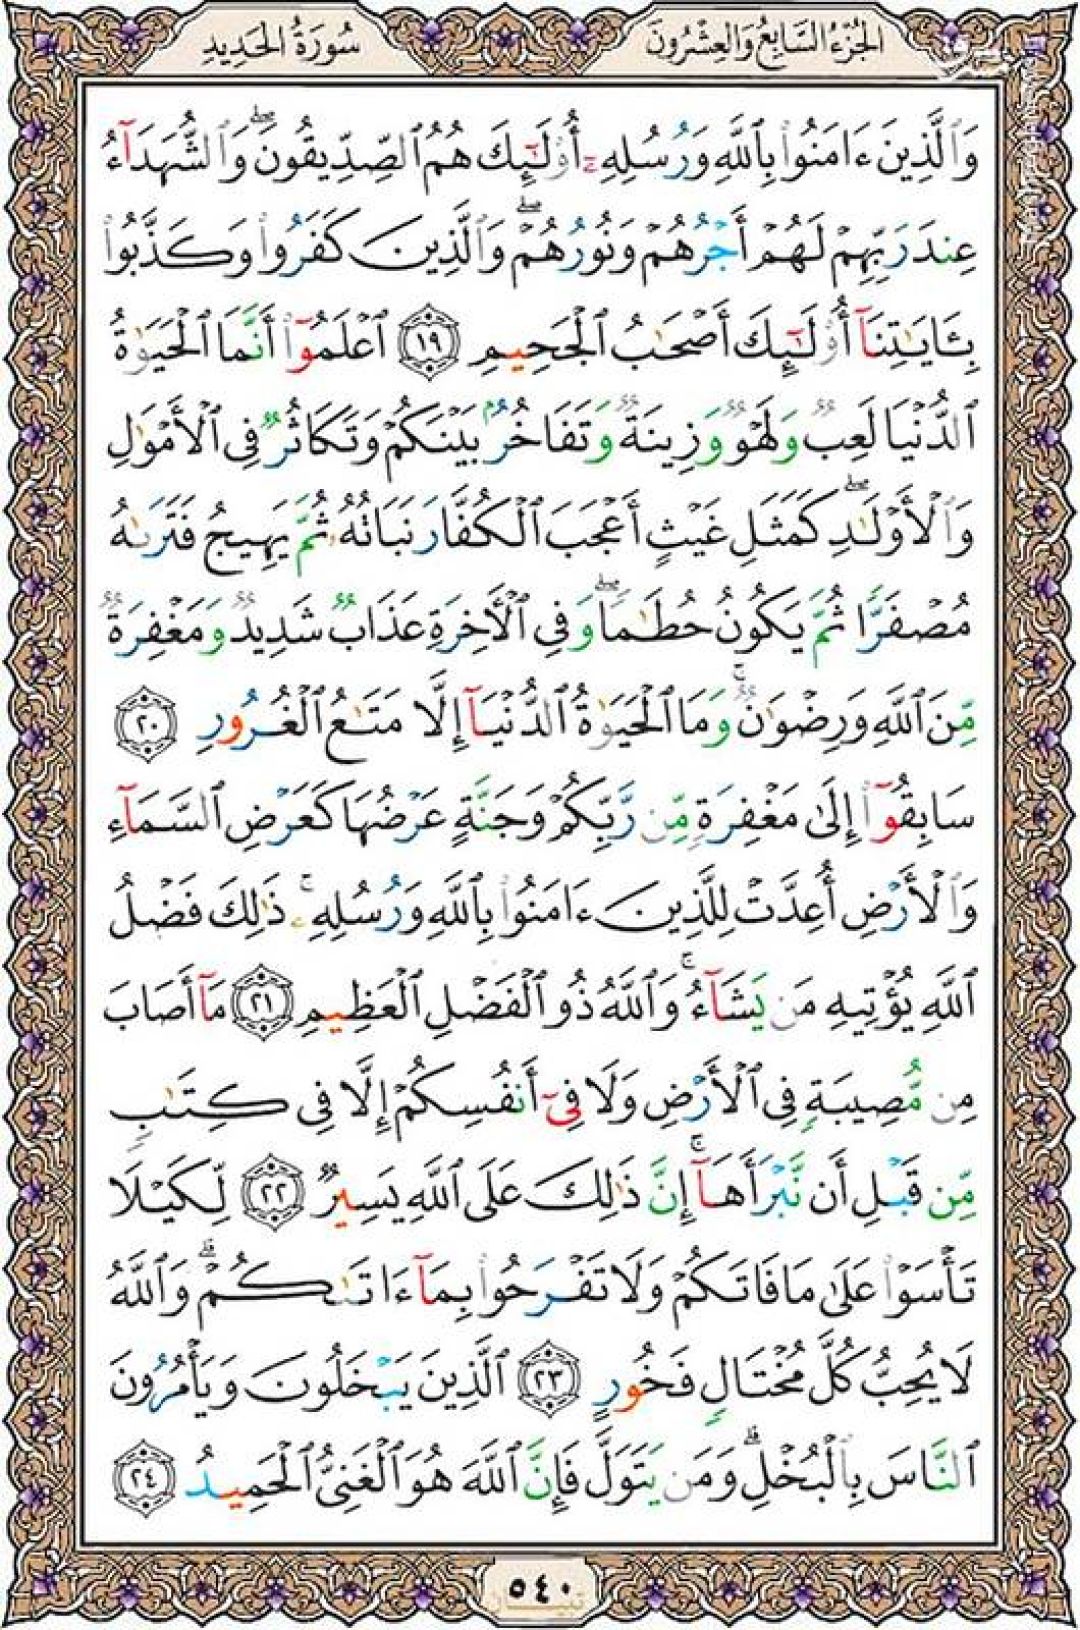 الجُزْءُ السَّابِعُ وَالعِشْرُونَ
سُورَةُ الحَدِيدِ
وَٱلَّذِينَ ءَامَنُوا۟ بِٱللَّهِ وَرُسُلِهِۦٓ أُو۟لَٰٓئِكَ هُمُ ٱلصِّدِّيقُونَ ۖ وَٱلشُّهَدَآءُ
عِندَ رَبِّهِمْ لَهُمْ أَجْرُهُمْ وَنُورُهُمْ ۖ وَٱلَّذِينَ كَفَرُوا۟ وَكَذَّبُوا۟
بِـَٔايَٰتِنَآ أُو۟لَٰٓئِكَ أَصْحَٰبُ ٱلْجَحِيمِ ١٩ ٱعْلَمُوٓا۟ أَنَّمَا ٱلْحَيَوٰةُ
ٱلدُّنْيَا لَعِبٌ وَلَهْوٌ وَزِينَةٌ وَتَفَاخُرٌۢ بَيْنَكُمْ وَتَكَاثُرٌ فِى ٱلْأَمْوَٰلِ
وَٱلْأَوْلَٰدِ ۖ كَمَثَلِ غَيْثٍ أَعْجَبَ ٱلْكُفَّارَ نَبَاتُهُۥ ثُمَّ يَهِيجُ فَتَرَىٰهُ
مُصْفَرًّا ثُمَّ يَكُونُ حُطَٰمًا ۖ وَفِى ٱلْأَخِرَةِ عَذَابٌ شَدِيدٌ وَمَغْفِرَةٌ
مِّنَ ٱللَّهِ وَرِضْوَٰنٌ ۚ وَمَا ٱلْحَيَوٰةُ ٱلدُّنْيَآ إِلَّا مَتَٰعُ ٱلْغُرُورِ ٢٠
سَابِقُوٓا۟ إِلَىٰ مَغْفِرَةٍ مِّن رَّبِّكُمْ وَجَنَّةٍ عَرْضُهَا كَعَرْضِ ٱلسَّمَآءِ
وَٱلْأَرْضِ أُعِدَّتْ لِلَّذِينَ ءَامَنُوا۟ بِٱللَّهِ وَرُسُلِهِۦ ۚ ذَٰلِكَ فَضْلُ
ٱللَّهِ يُؤْتِيهِ مَن يَشَآءُ ۚ وَٱللَّهُ ذُو ٱلْفَضْلِ ٱلْعَظِيمِ ٢١ مَآ أَصَابَ
مِن مُّصِيبَةٍ فِى ٱلْأَرْضِ وَلَا فِىٓ أَنفُسِكُمْ إِلَّا فِى كِتَٰبٍ
مِّن قَبْلِ أَن نَّبْرَأَهَآ ۚ إِنَّ ذَٰلِكَ عَلَى ٱللَّهِ يَسِيرٌ ٢٢ لِّكَيْلَا
تَأْسَوْا۟ عَلَىٰ مَا فَاتَكُمْ وَلَا تَفْرَحُوا۟ بِمَآ ءَاتَىٰكُمْ ۗ وَٱللَّهُ
لَا يُحِبُّ كُلَّ مُخْتَالٍ فَخُورٍ ٢٣ ٱلَّذِينَ يَبْخَلُونَ وَيَأْمُرُونَ
ٱلنَّاسَ بِٱلْبُخْلِ ۗ وَمَن يَتَوَلَّ فَإِنَّ ٱللَّهَ هُوَ ٱلْغَنِىُّ ٱلْحَمِيدُ ٢٤
٥٤٠
تبيان